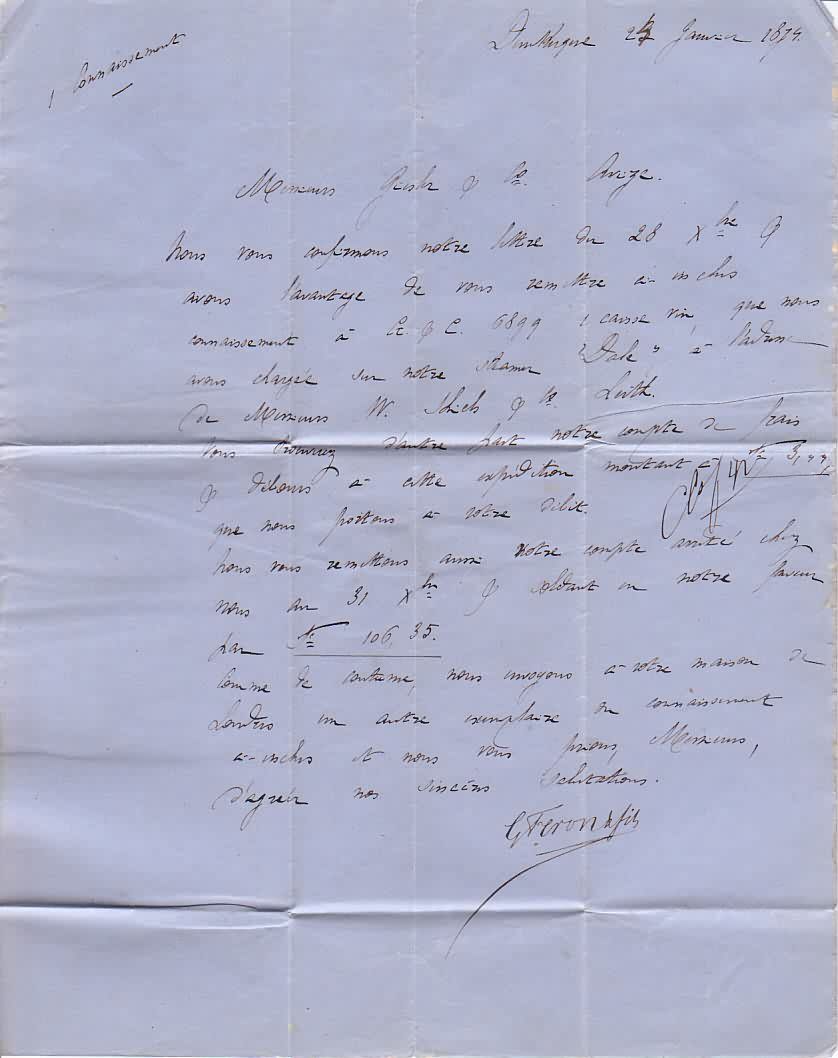 1 Connaissement
Dunkerque 24 Janvier 1874.
Messieurs & Co. Avize.
Nous vous confirmons notre lettre du 28 Xbre &
avons l'avantage de vous remettre ci-inclus
connaissement à G. & C. 6899 1 caisse vin, que nous
avons chargée sur notre steamer "Dale" à l'adresse
de Messieurs W. Shiels & Co Leith.
Vous trouverez d'autre part notre compte de frais
& débours à cette expédition montant à 3,
que nous portons à votre débit.
Nous vous remettons aussi votre compte arrêté chez
nous au 31 Xbre & soldant en notre faveur
par 106,35.
Comme de coutume, nous envoyons à votre maison de
Londres un autre exemplaire du connaissement
ci-inclus et nous vous prions, Messieurs,
d'agréer nos sincères salutations.
G Feron & fils